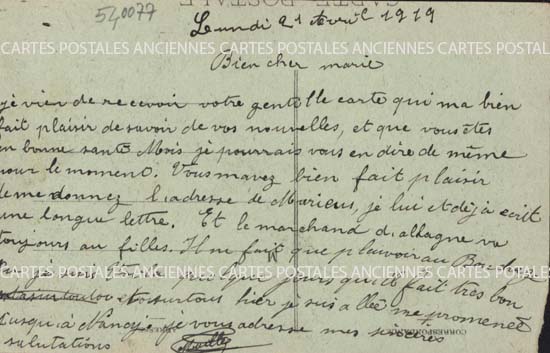 540077
Lundi 21 Avril 1919
CARTES POSTALES ANCIENNES CARTES POSTALES ANCIENNES CARTES POSTALES
Bien cher marie
je vien de recevoir votre gentille carte qui ma bien
fait plaisir de savoir de vos nouvelles, et que vous êtes
en bonne santé Mois je pourrais vous en dire de même
pour le moment. Vous mavez bien fait plaisir
de me donnez l'adresse de Marieus, je lui et déjà ecrit
une longue lettre. Et le marchand d'allagne va
toujours au filles. Il ne fait que pleuvoir au
jours qu'il fait tres bon
et surtous hier je suis allée me promenée
jusqu'à Nancy je vous adresse mes sincères
salutations
CORRESPONDANCE